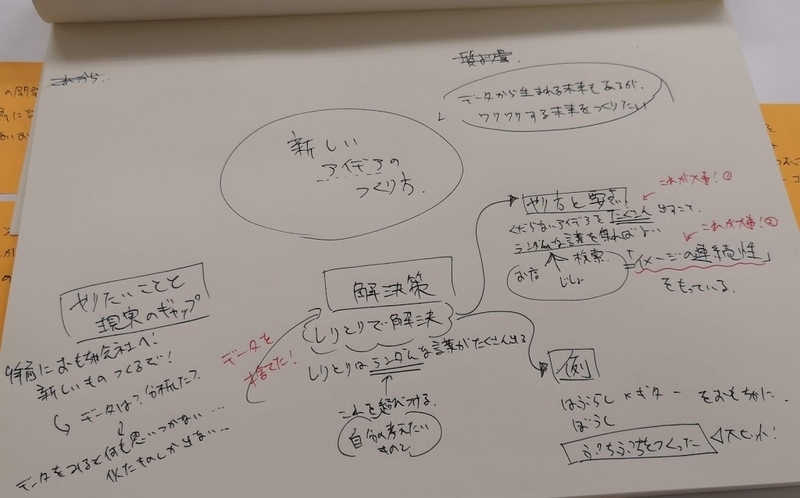 これから…
質より量
データから生まれる未来もあるが、
ワクワクする未来をつくりたい
新しい
アイデアの
つくり方.
やりたいことと
現実のギャップ
おもちゃ会社へ!
新しいものつくるで!
データは?分析した?
データをみると何も思いつかない…
似たものしか出ない…
データを
捨てた!
解決策
しりとりで解決
しりとりはランダムな言葉がたくさん出る
これを
自分の考えたい
ものと
やり方と要点
これが大事!①
くだらないアイデアをたくさん出すこと.
ランダムな言葉を
これが大事!②
検索
お店
じしょ
「イメージの連続性」
をもっている.
例
はぶらし×ギター をおもちゃに.
ぼうし
をつくった
大ヒット!